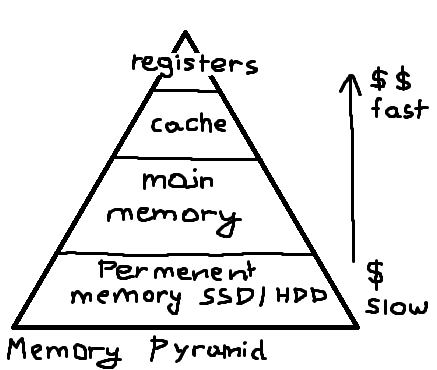 registers
cache
main
memory
Permenent
memory SSD/HDD
$$
fast
$
slow
Memory Pyramid